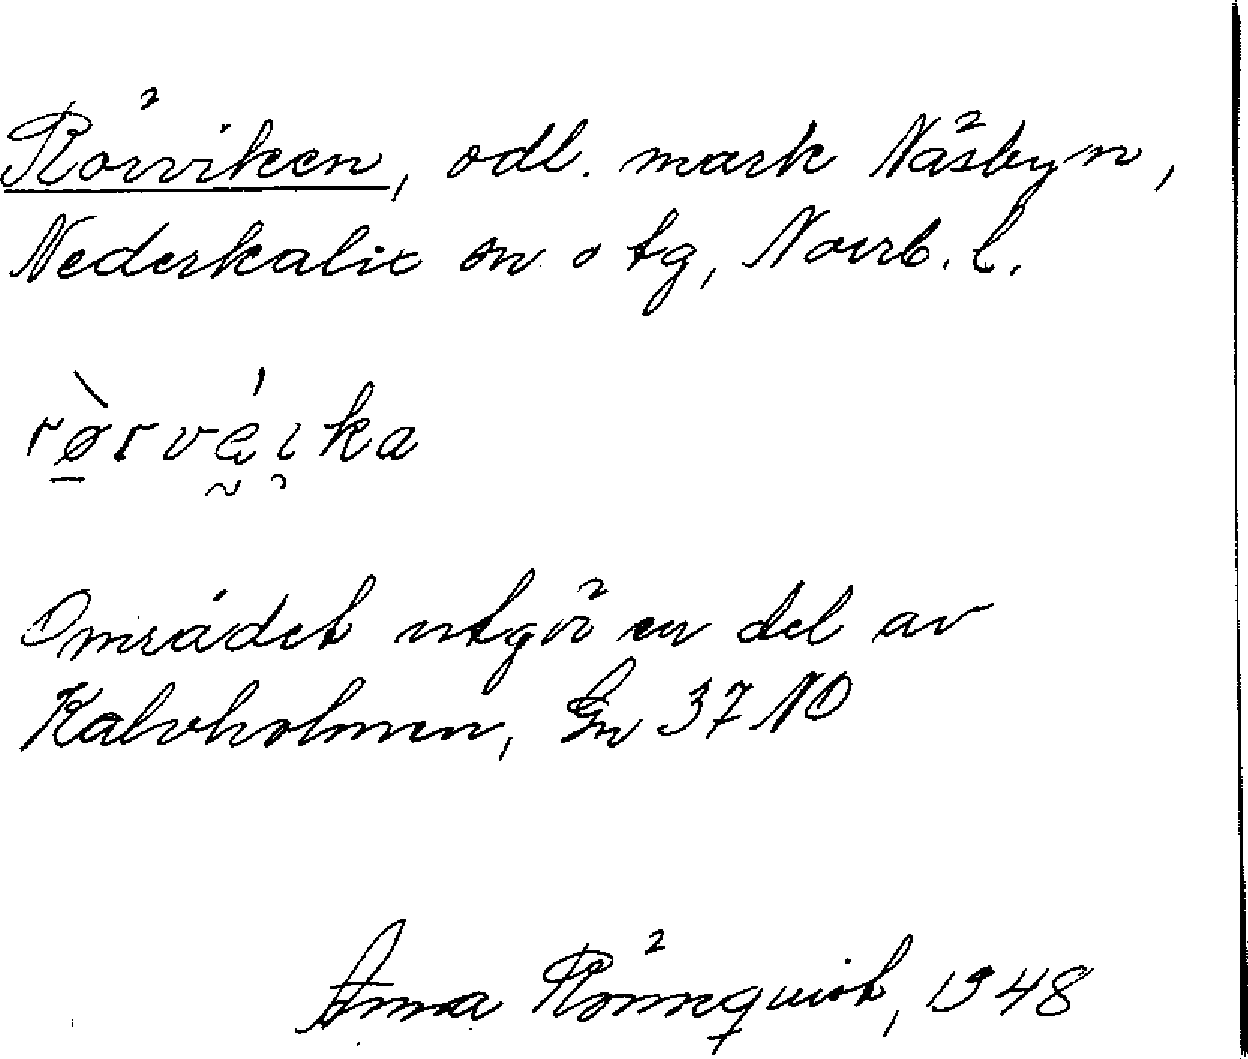 Rörviken, odl. mark Näsbyn,
Nederkalix sn o tg, Norrb. l.
rø̱̀rvḛ́i̯ka
Området utgör en del av
Kalvholmen, Gn 37 NO
Anna Rönnquist, 1948